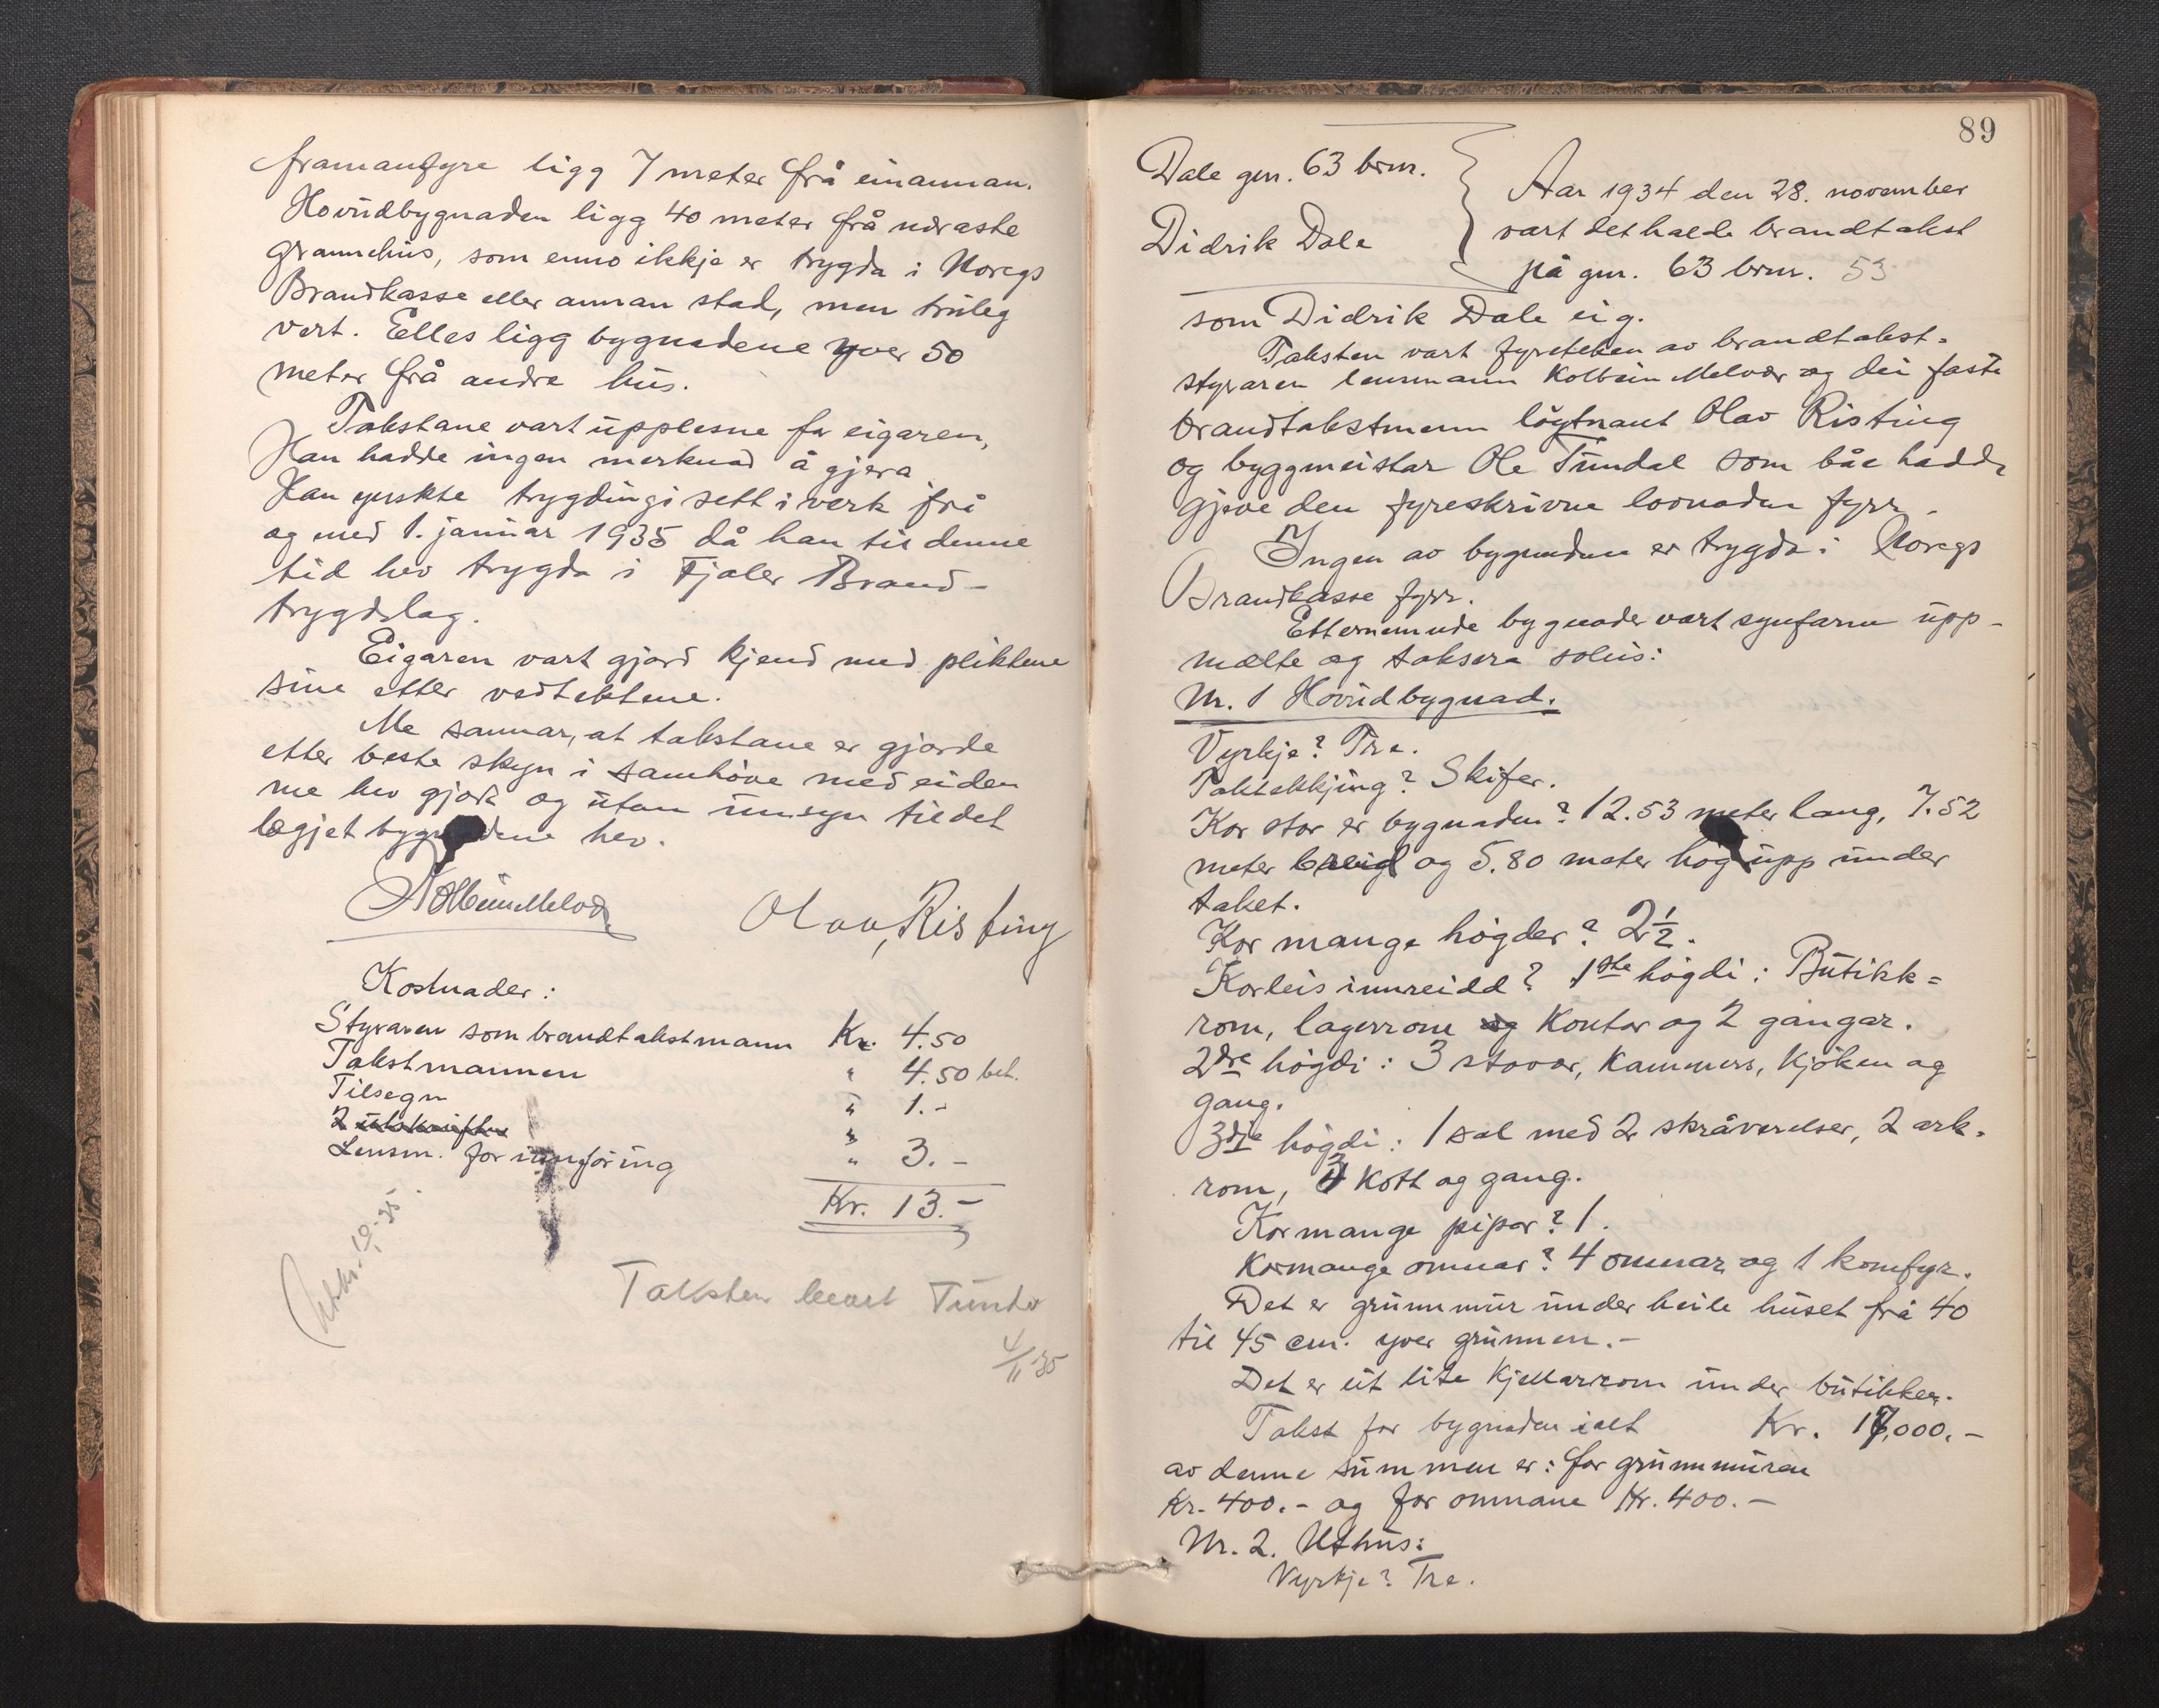 framanfyre ligg 7 meter frå einannan.
Hovudbygnaden ligg 40 meter frå næraste
grannehus, som enno ikkje er trygda i Noregs
Brandkasse eller annan stad, men truleg
vert. Elles ligg bygnadene yver 50
meter frå andre hus.
Takstane vart upplesne for eigaren,
Han hadde ingen merknad å gjera
Han ynskte trygdingi sett i verk frå
og med 1. januar 1935 då han til denne
tid hev trygda i Fjaler Brand-
trygdelag.
Eigaren vart gjord kjend med pliktene
sine etter vedtektene.
Me sannar, at takstane er gjorde
etter beste skyn i samhøve med eiden
me hev gjort og utan umsyn til det
lægjet bygnadene hev.
Kolbein Melvær
Olav Risting
Kostnader:
Styraren som brandtakstmann Kr. 4.50
Takstmannen " 4.50 bet.
Tilsegn " 1.-
2 utskrifter "
Lensm. for innføring " 3.-
Kr. 13.-
Taksten
4/11 35
89
Dale gnr. 63 brnr.
Didrik Dale
Aar 1934 den 28. november
vart det halde brandtakst
på gnr. 63 brnr. 53
som Didrik Dale eig.
Taksten vart fyreteken av brandtakst-
styraren lensmann Kolbein Melvær og dei faste
brandtakstmenn løytnant Olav Risting
og byggmeistar Ole Tundal som båe hadde
gjeve den fyreskrivne lovnaden fyrr.
Ingen av bygnadene er trygda i Noregs
Brandkasse fyrr.
Etternemnde bygnader vart synfarne upp-
mælte og taksera soleis:
Nr. 1 Hovudbygnad.
Vyrkje? Tre.
Taktekkjing? Skifer.
Kor stor er bygnaden? 12.53 meter lang, 7.52
meter breid og 5.80 meter høg upp under
taket.
Kor mange høgder? 2 1/2.
Korleis innreidd? 1ste høgdi: Butikk=
rom, lagerrom og Kontor og 2 gangar.
2dre høgdi: 3 stovor, Kammers, Kjøken og
gang.
3dje høgdi: 1 sal med 2 skråverelser, 2 ark-
rom, 3 Kott og gang.
Kor mange pipor? 1.
Kormange omnar? 4 omnar og 1 komfyr.
Det er grunnmur under heile huset frå 40
til 45 cm. yver grunnen.-
Det er eit lite Kjellarrom under butikken.
Takst for bygnaden ialt Kr. 17,000.-
av denne summen er: for grunnmuren
Kr. 400.- og for omnane Kr. 400.-
Nr. 2. Uthus:
Vyrkje? Tre.